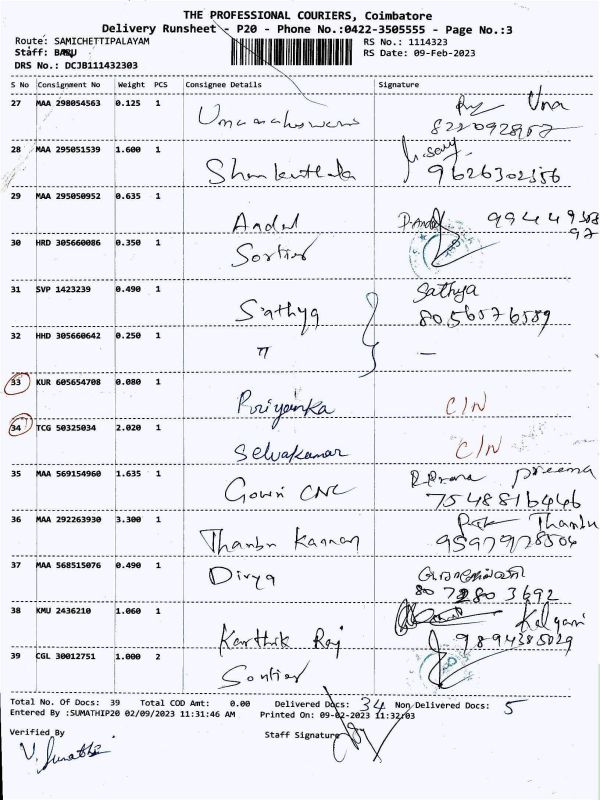 THE PROFESSIONAL COURIERS, Coimbatore
Delivery Runsheet - P20 - Phone No.:0422-3505555 - Page No.:3
Route: SAMICHETTIPALAYAM RS No.: 1114323
Staff: BABU RS Date: 09-Feb-2023
DRS No.: DCJB111432303
S No Consignment No Weight PCS Consignee Details Signature
27 MAA 298054563 0.125 1
Umamaheswari Uma
8220928957
28 MAA 295051539 1.600 1
Shankuthala 9626302356
29 MAA 295050952 0.635 1
Andal P.Andal 99449358
97
30 HRD 305660086 0.350 1
Sortier
31 SVP 1423239 0.490 1
Sathya Sathya
8056576589
32 HHD 305660642 0.250 1
" —
33 KUR 605654708 0.080 1
Priyanka C/N
34 TCG 50325034 2.020 1
Selvakumar C/N
35 MAA 569154960 1.635 1
Gowri CNC preema
7548816446
36 MAA 292263930 3.300 1
Thanbu Kannan Thanbu
9597928504
37 MAA 568515076 0.490 1
Divya
80 7280 3692
38 KMU 2436210 1.060 1
Karthik Raj Kalyani
9894385029
39 CGL 30012751 1.000 2
Sortier
Total No. Of Docs: 39 Total COD Amt: 0.00 Delivered Docs: 34 Non Delivered Docs: 5
Entered By :SUMATHIP20 02/09/2023 11:31:46 AM Printed On: 09-02-2023 11:32:03
Verified By Staff Signature
V. Sumathi